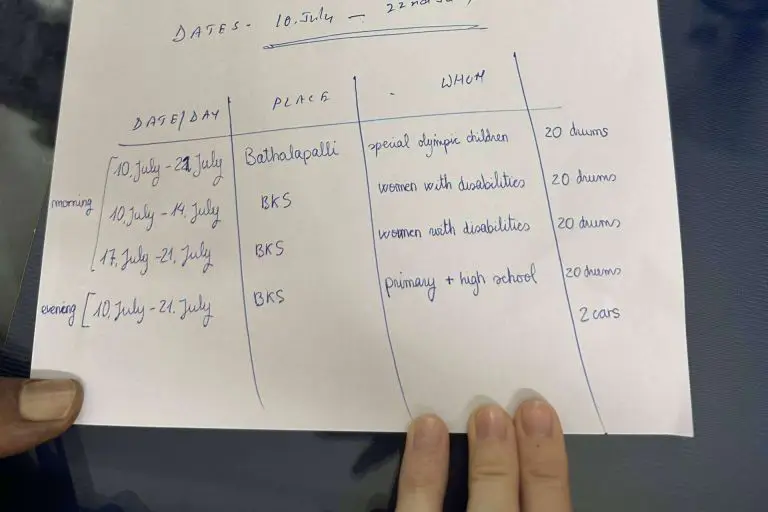 DATES - 10. July - 22nd
DATE/DAY PLACE WHOM
morning 10. July - 21 July Bathalapalli special olympic children 20 drums
10. July - 14. July BKS women with disabilities 20 drums
17. July - 21. July BKS women with disabilities 20 drums
evening 10. July - 21. July BKS primary + high school 20 drums
2 cars